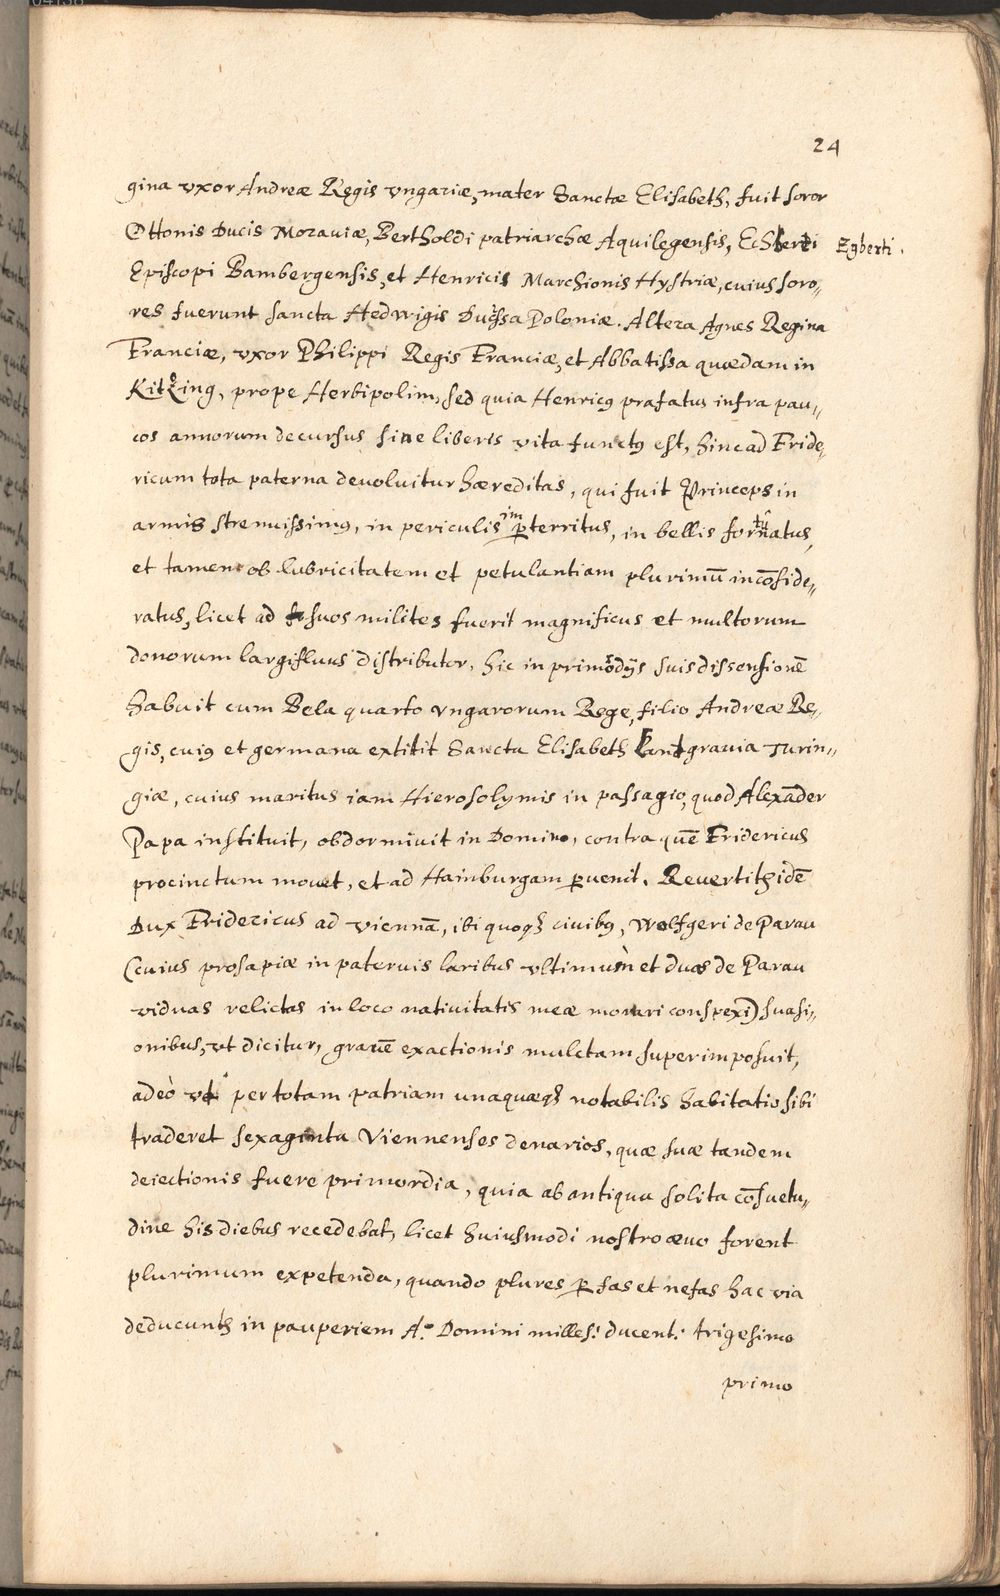 24
gina vxor Andreæ Regis vngariæ, mater Sanctæ Elisabeth, fuit soror
Ottonis Ducis Morauiæ, Bertholdi patriarchæ Aquilegensis, Echberti Egberti.
Episcopi Bambergensis, et Henricis Marchionis Hystriæ, cuius soro„
res fuerunt sancta Hedwigis Ducissa Poloniæ. Altera Agnes Regina
Franciæ, vxor Philippi Regis Franciæ, et Abbatissa quædam in
Kitzing, prope Herbipolim, sed quia Henricꝰ præfatus infra pau„
cos annorum decursus sine liberis vita functꝰ est, hinc ad Fride„
ricum tota paterna deuoluitur hæreditas, qui fuit Princeps in
armis strenuissimꝰ, in periculis imꝑterritus, in bellis fortũatus,
et tamen ob lubricitatem et petulantiam plurimū incōside„
ratus, licet ad suos milites fuerit magnificus et multorum
donorum largifluus distributor, hic in primordijs suis dissensionē
habuit cum Bela quarto vngarorum Rege, filio Andreæ Re„
gis, cuiꝰ et germana extitit Sancta Elisabeth Lantgrauia Turin„
giæ, cuius maritus iam Hierosolymis in passagio, quod Alexāder
Papa instituit, obdormiuit in Domino, contra quē Fridericus
procinctum mouet, et ad Hainburgam ꝑuenit. Reuertitꝫ idē
Dux Fridericus ad viennā, ibi quoqꝫ ciuibꝰ, Wolfgeri de Parau
(cuius prosapiæ in paternis laribus vltimum et duas de Parau
viduas relictas in loco natiuitatis meæ morari conspexi) suasi„
onibus, vt dicitur, grauē exactionis mulctam superimposuit,
adeò vt per totam patriam unaquæqꝫ notabilis habitatio sibi
traderet sexaginta Viennenses denarios, quæ suæ tandem
deiectionis fuere primordia, quia ab antiqua solita cōsuetu„
dine his diebus recedebat, licet huiusmodi nostro æuo forent
plurimum expetenda, quando plures ꝑ fas et nefas hac via
deducuntꝫ in pauperiem Aº. Domini milles: ducent: trigesimo
primo